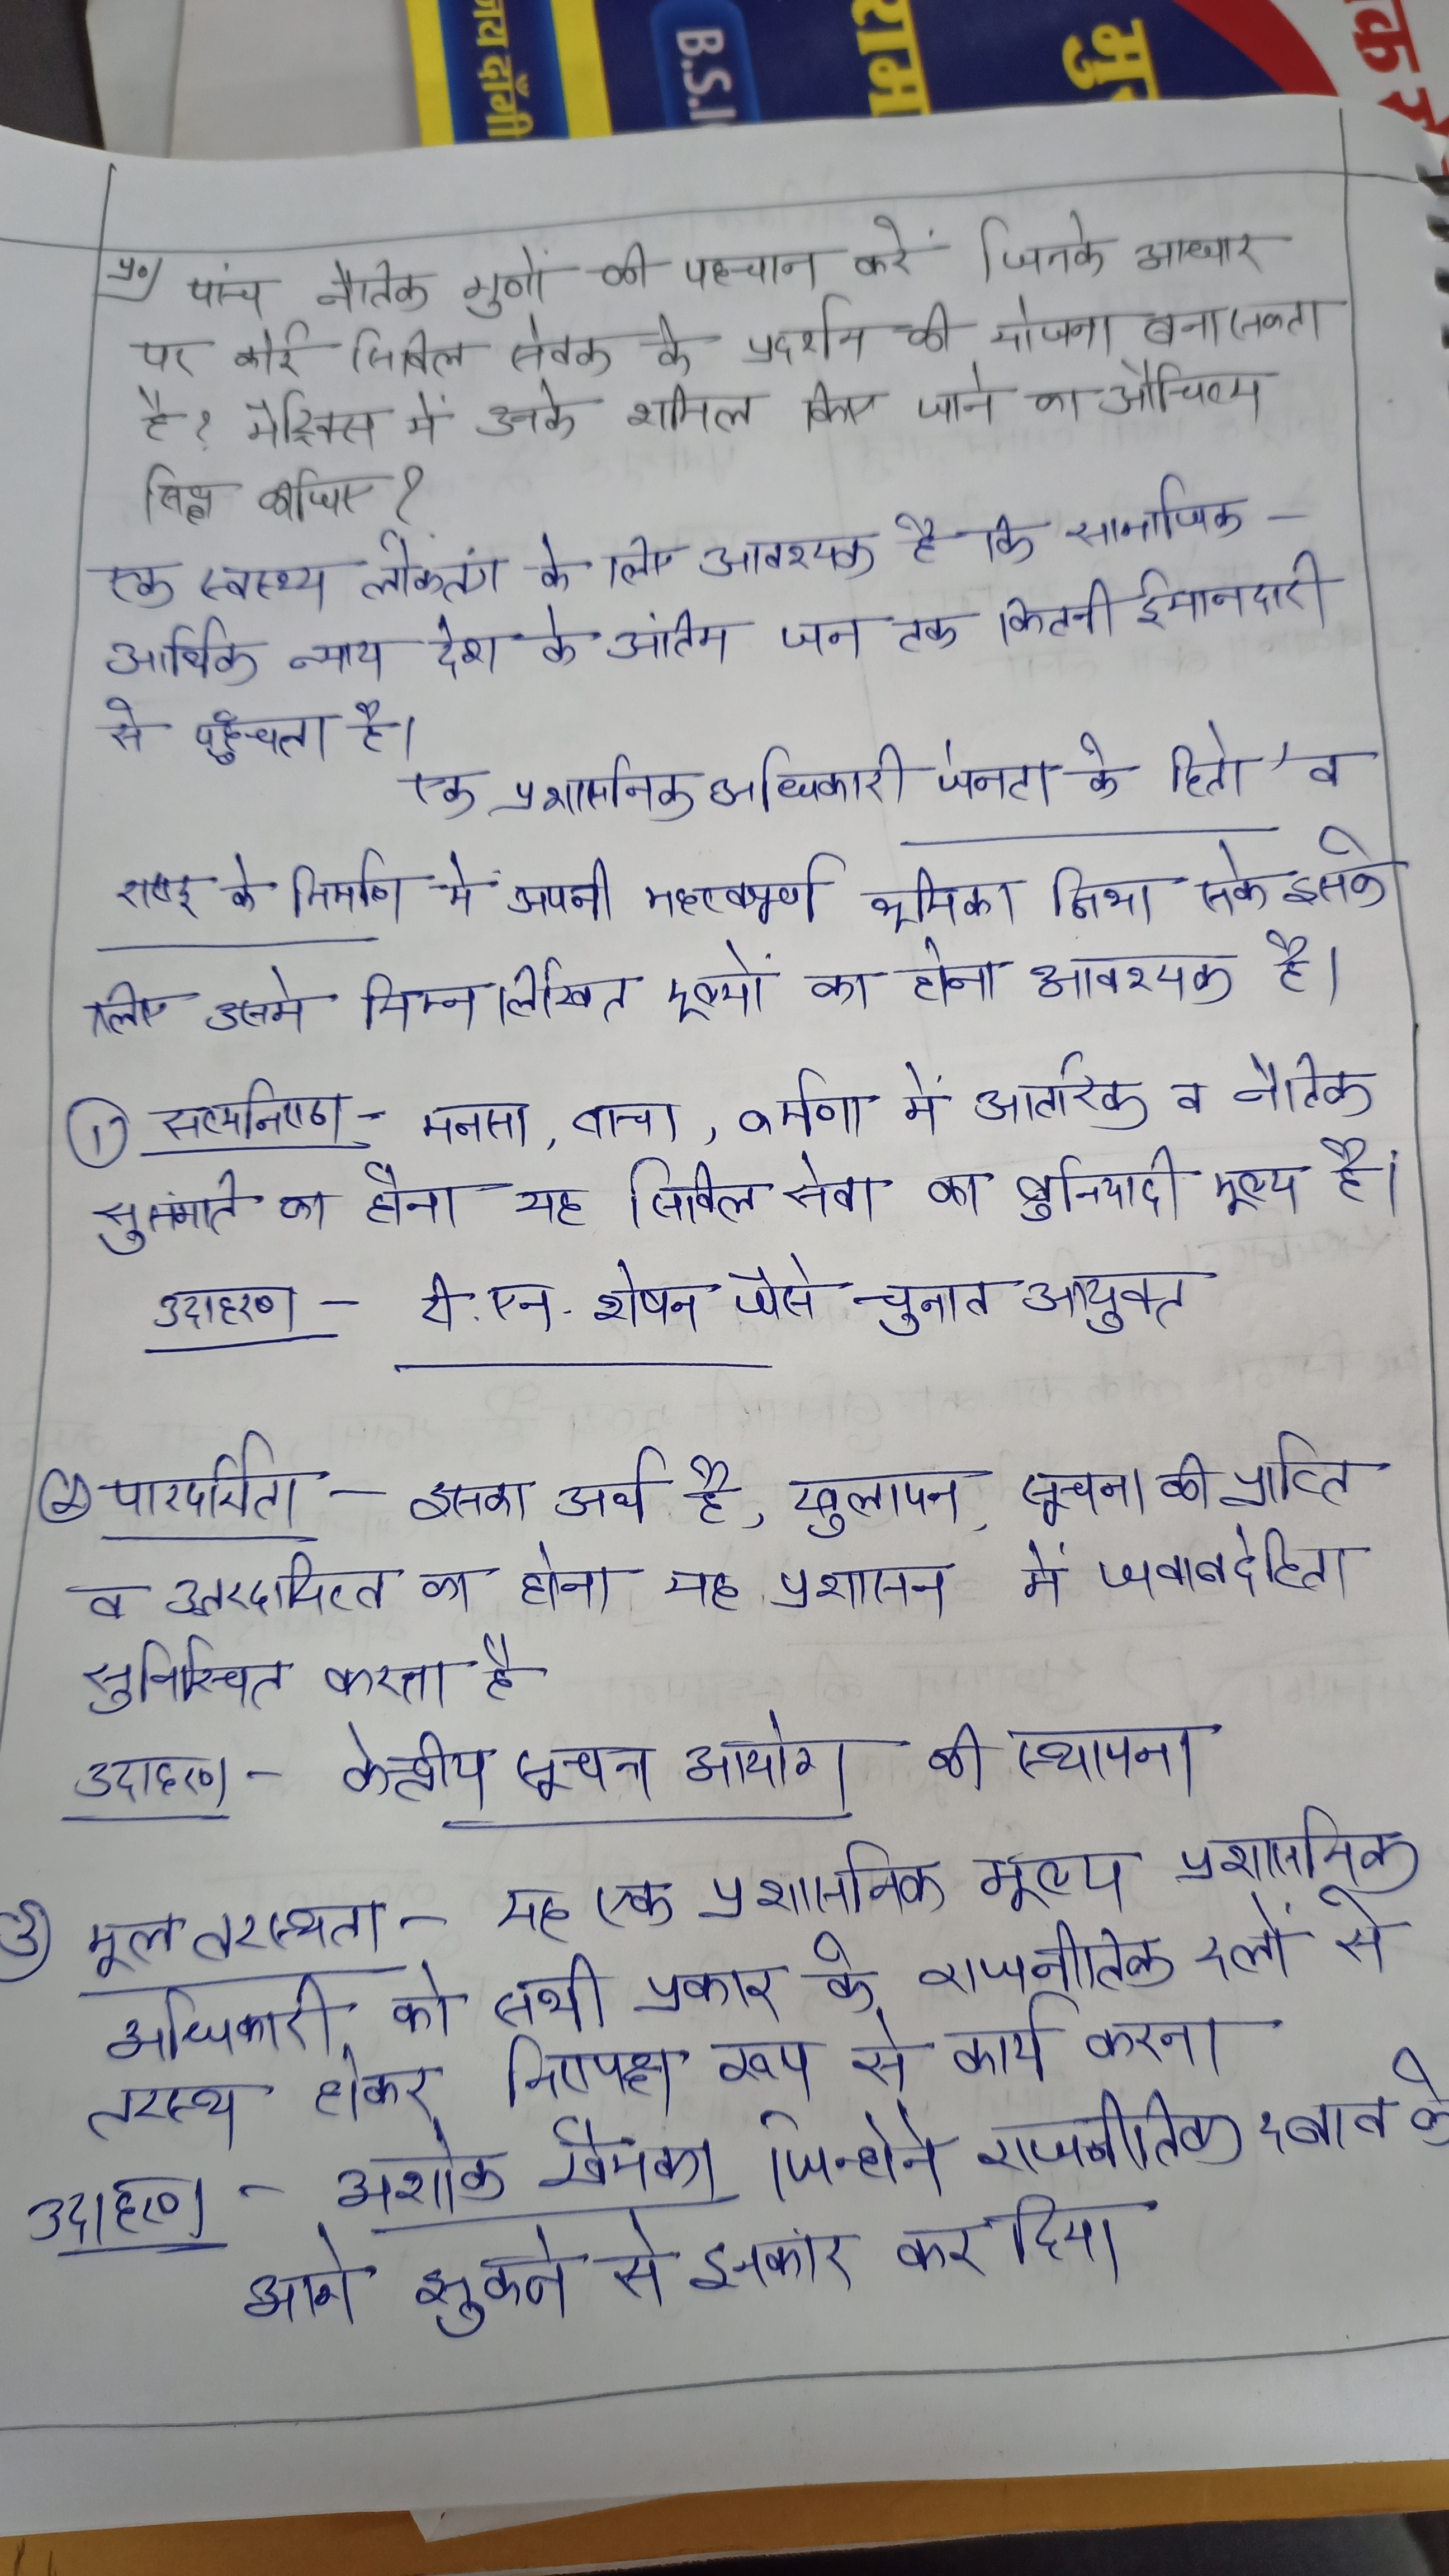 जय दाँगी
B.S.
राम
मु
क
प्र०) पांच नैतिक गुणों की पहचान करें जिनके आधार
पर कोई सिविल सेवक के प्रदर्शन की योजना बना सकता
है? मैट्रिक्स में उनके शामिल किए जाने का औचित्य
सिद्ध कीजिए?
एक स्वस्थ्य लोकतंत्र के लिए आवश्यक है कि सामाजिक -
आर्थिक न्याय देश के अंतिम जन तक कितनी ईमानदारी
से पहुँचता है।
एक प्रशासनिक अधिकारी जनता के हितो व
राष्ट्र के निर्माण मे अपनी महत्वपूर्ण भूमिका निभा सके इसके
लिए उसमे निम्नलिखित मूल्यों का होना आवश्यक है।
① सत्यनिष्ठा - मनसा, वाचा, कर्मणा में आंतरिक व नैतिक
सुसंगति का होना यह सिविल सेवा का बुनियादी मूल्य है।
उदाहरण - टी. एन. शेषन जैसे चुनाव आयुक्त
② पारदर्शिता - इसका अर्थ है, खुलापन, सूचना की प्राप्ति
व उत्तरदायित्व का होना यह प्रशासन में जवाबदेहिता
सुनिश्चित करता है
उदाहरण - केन्द्रीय सूचना आयोग की स्थापना
③ मूल तटस्थता - यह एक प्रशासनिक मूल्य प्रशासनिक
अधिकारी को सभी प्रकार के राजनीतिक दलों से
तटस्थ होकर निष्पक्ष रूप से कार्य करना
उदाहरण - अशोक खेमका जिन्होने राजनीतिक दबाव के
आगे झुकने से इनकार कर दिया